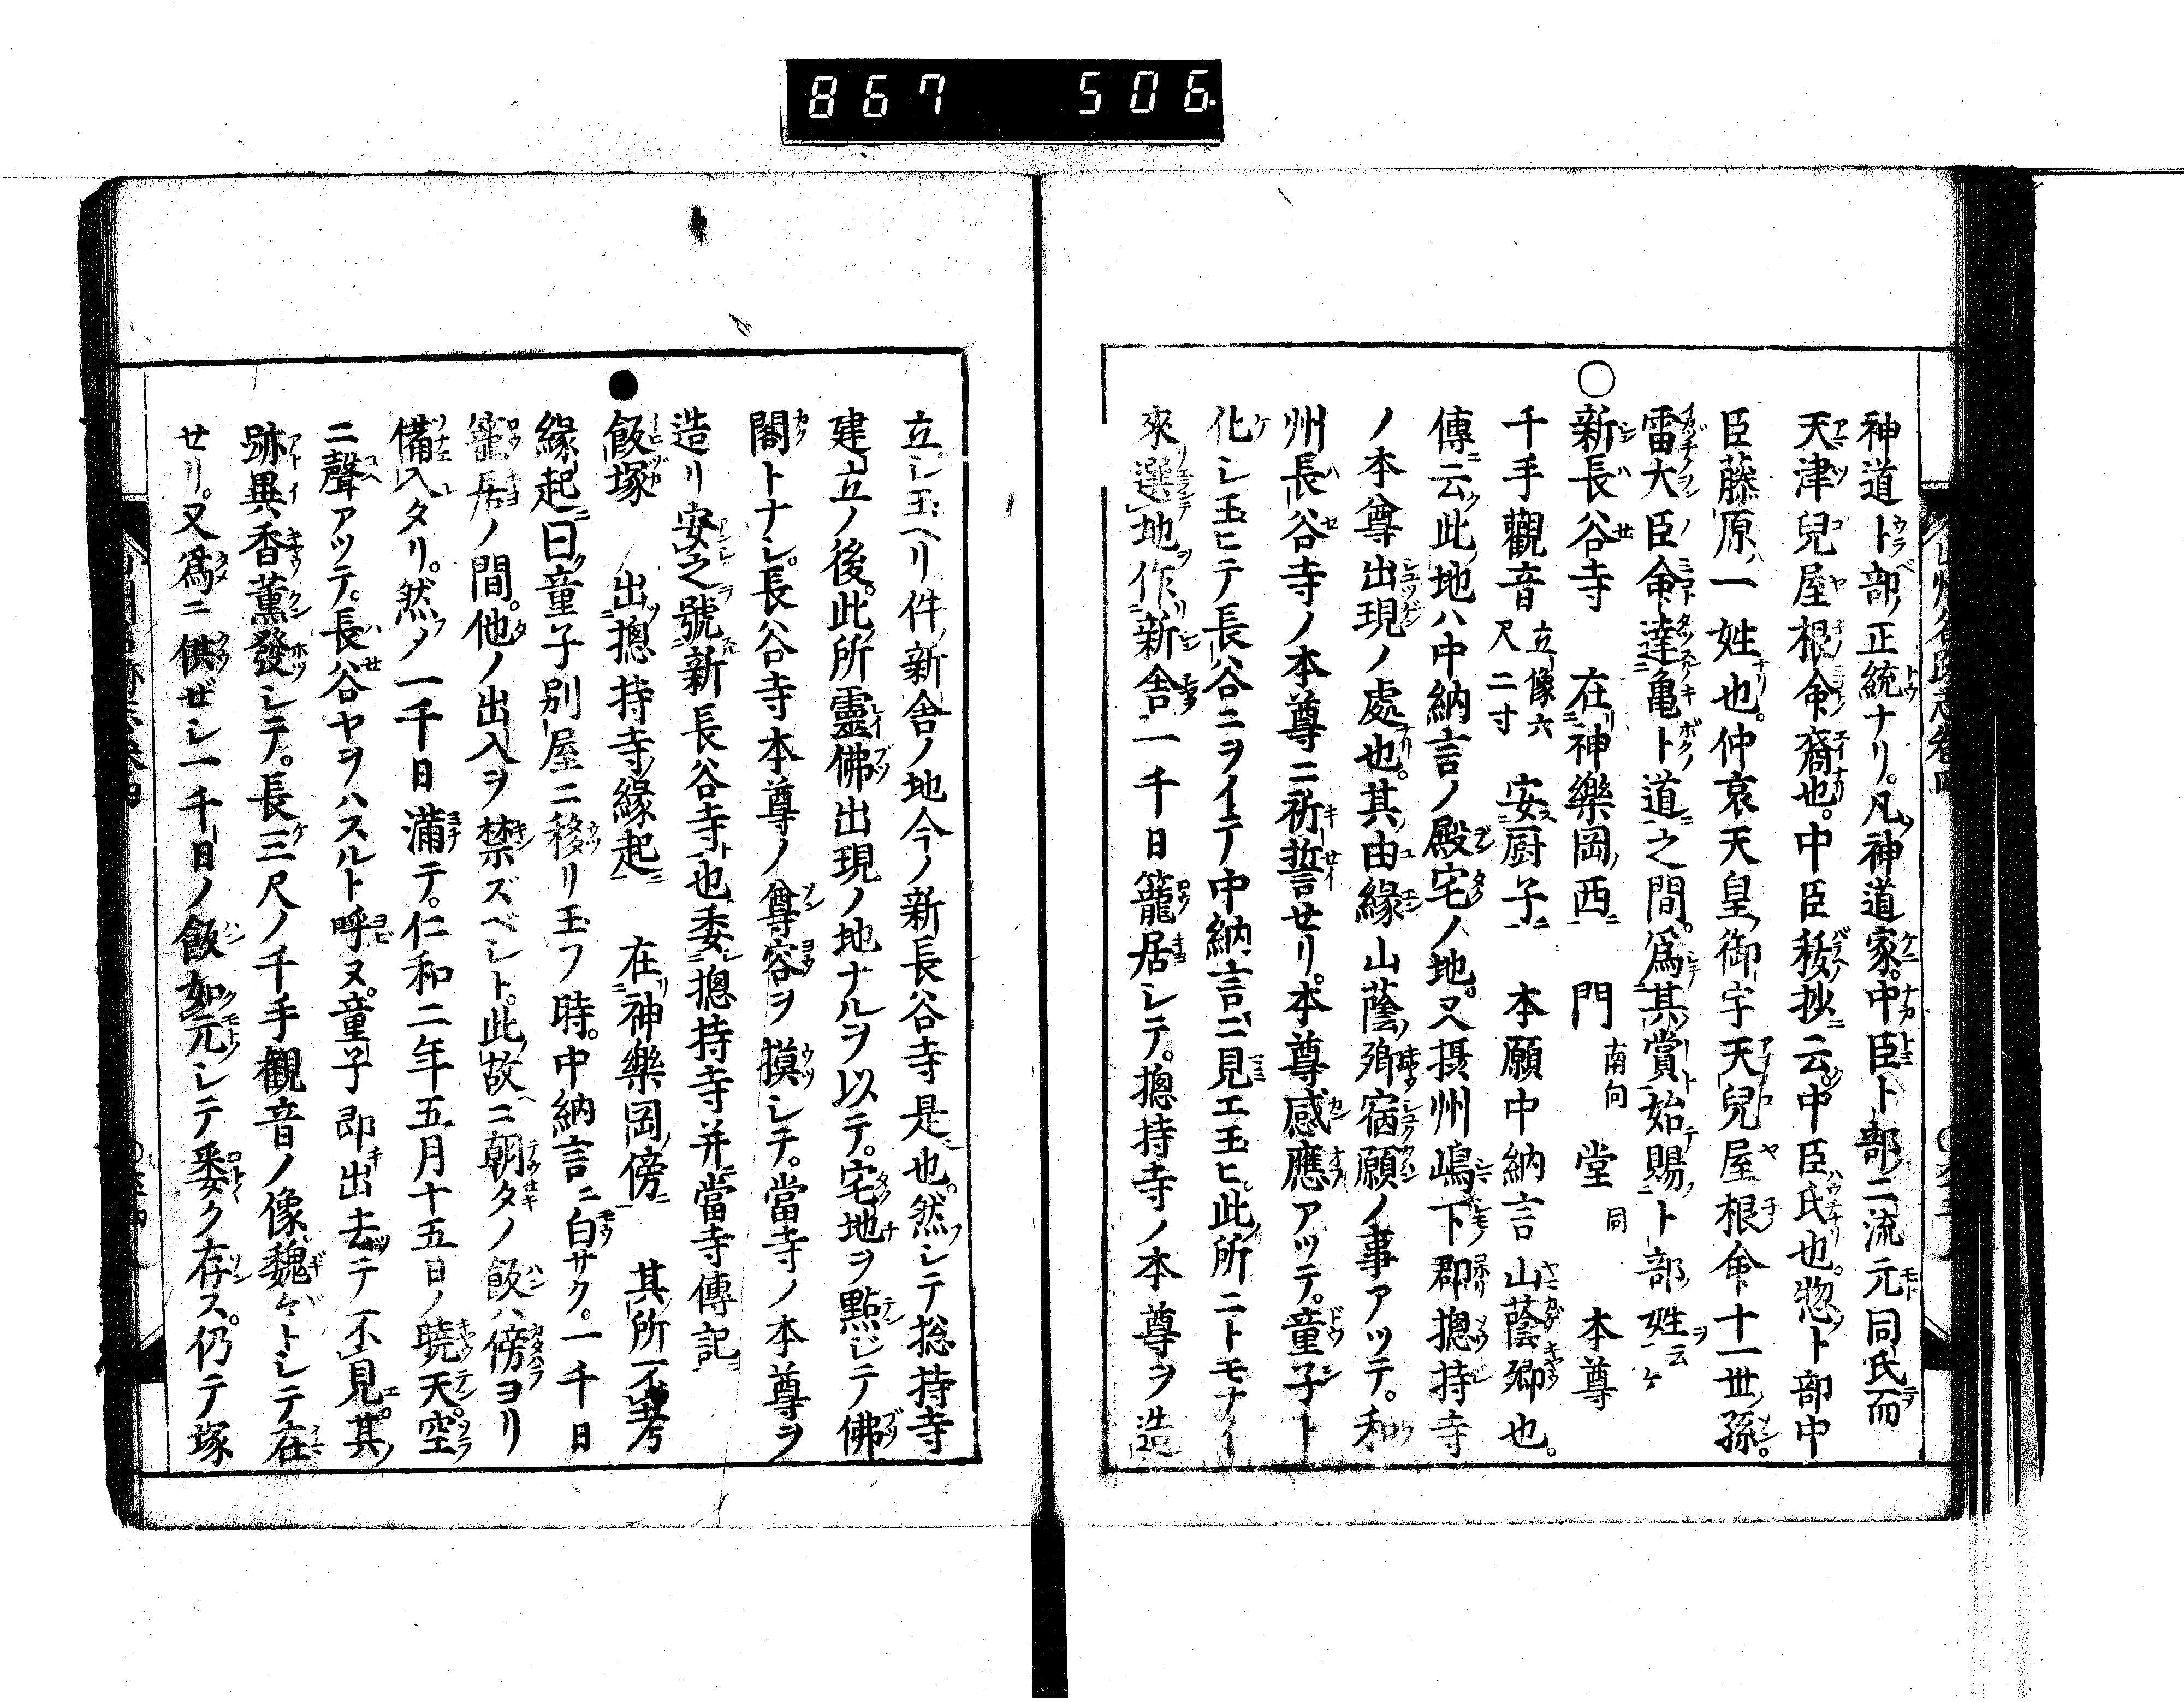 867 506
神道卜部ノ正統ナリ。凡神道家。中臣卜部二流元同氏而
天津兒屋根命裔也。中臣秡抄ニ云。中臣氏也。惣卜部中
臣藤原一姓也。仲哀天皇御宇天兒屋根命十一世孫。
雷大臣命達亀卜道之間。爲其賞始賜卜部姓ヲ云云
○新長谷寺 在神樂岡西 門南向 堂同 本尊
千手觀音立像六尺二寸 安厨子 本願中納言山蔭卿也。
傳云此地ハ中納言ノ殿宅ノ地。又摂州嶋下郡摠持寺
ノ本尊出現ノ處也。其由緣山蔭卿宿願ノ事アツテ。和
州長谷寺ノ本尊ニ祈誓セリ。本尊感應アツテ。童子ト
化シ玉ヒテ長谷ニヲイテ中納言ニ見エ玉ヒ。此所ニトモナイ
來選地ヲ作新舍一千日籠居シテ。摠持寺ノ本尊ヲ造
立シ玉ヘリ件新舍ノ地今ノ新長谷寺是也。然シテ摠持寺
建立ノ後。此所靈佛出現ノ地ナルヲ以テ。宅地ヲ點ジテ佛
閣トナシ。長谷寺本尊ノ尊容ヲ摸シテ。當寺ノ本尊ヲ
造リ安之號新長谷寺也委摠持寺并當寺傳記
●飯塚 出摠持寺緣起 在神樂岡傍 其所不考
緣起曰童子別屋ニ移リ玉フ時。中納言ニ白サク。一千日
籠居ノ間。他ノ出入ヲ禁ズベシト。此故ニ朝タノ飯ハ傍ヨリ
備入タリ。然ノ一千日滿テ。仁和二年五月十五日ノ曉天。空
ニ聲アツテ。長谷ヤヲハスルト呼ヌ。童子即出去テ不見。其
跡異香薫發シテ。長三尺ノ千手觀音ノ像魏々トシテ在
セリ。又爲ニ供ゼシ一千日ノ飯如元シテ委ク存ス。仍テ塚